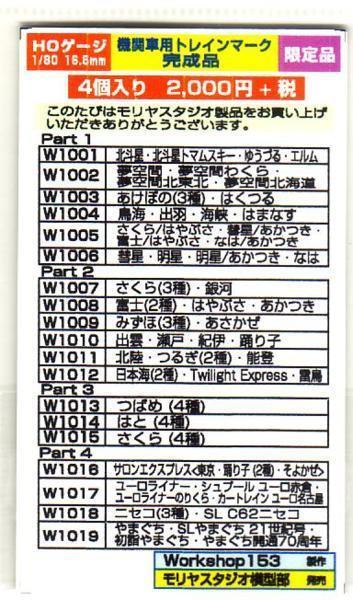 HOゲージ
1/80 16.5mm
機関車用トレインマーク
完成品
限定品
4個入り 2,000円+税
このたびはモリヤスタジオ製品をお買い上げ
いただきありがとうございます。
Part 1
W1001 北斗星・北斗星トマムスキー・ゆうづる・エルム
W1002 夢空間・夢空間わくら・
夢空間北東北・夢空間北海道
W1003 あけぼの(3種)・はくつる
W1004 鳥海・出羽・海峡・はまなす
W1005 さくら/はやぶさ・彗星/あかつき・
富士/はやぶさ・なは/あかつき
W1006 彗星・明星・明星/あかつき・なは
Part 2
W1007 さくら(3種)・銀河
W1008 富士(2種)・はやぶさ・あかつき
W1009 みずほ(3種)・あさかぜ
W1010 出雲・瀬戸・紀伊・踊り子
W1011 北陸・つるぎ(2種)・能登
W1012 日本海(2種)・Twilight Express・雷鳥
Part 3
W1013 つばめ (4種)
W1014 はと (4種)
W1015 さくら (4種)
Part 4
W1016 サロンエクスプレス<東京・踊り子(2種)・そよかぜ>
W1017 ユーロライナー・シュプール ユーロ赤倉・
ユーロライナーのりくら・カートレイン ユーロ名古屋
W1018 ニセコ(3種)・SL C62ニセコ
W1019 やまぐち・SLやまぐち 21世紀号・
初詣やまぐち・やまぐち開通70周年
Workshop153 製作
モリヤスタジオ模型部 発売